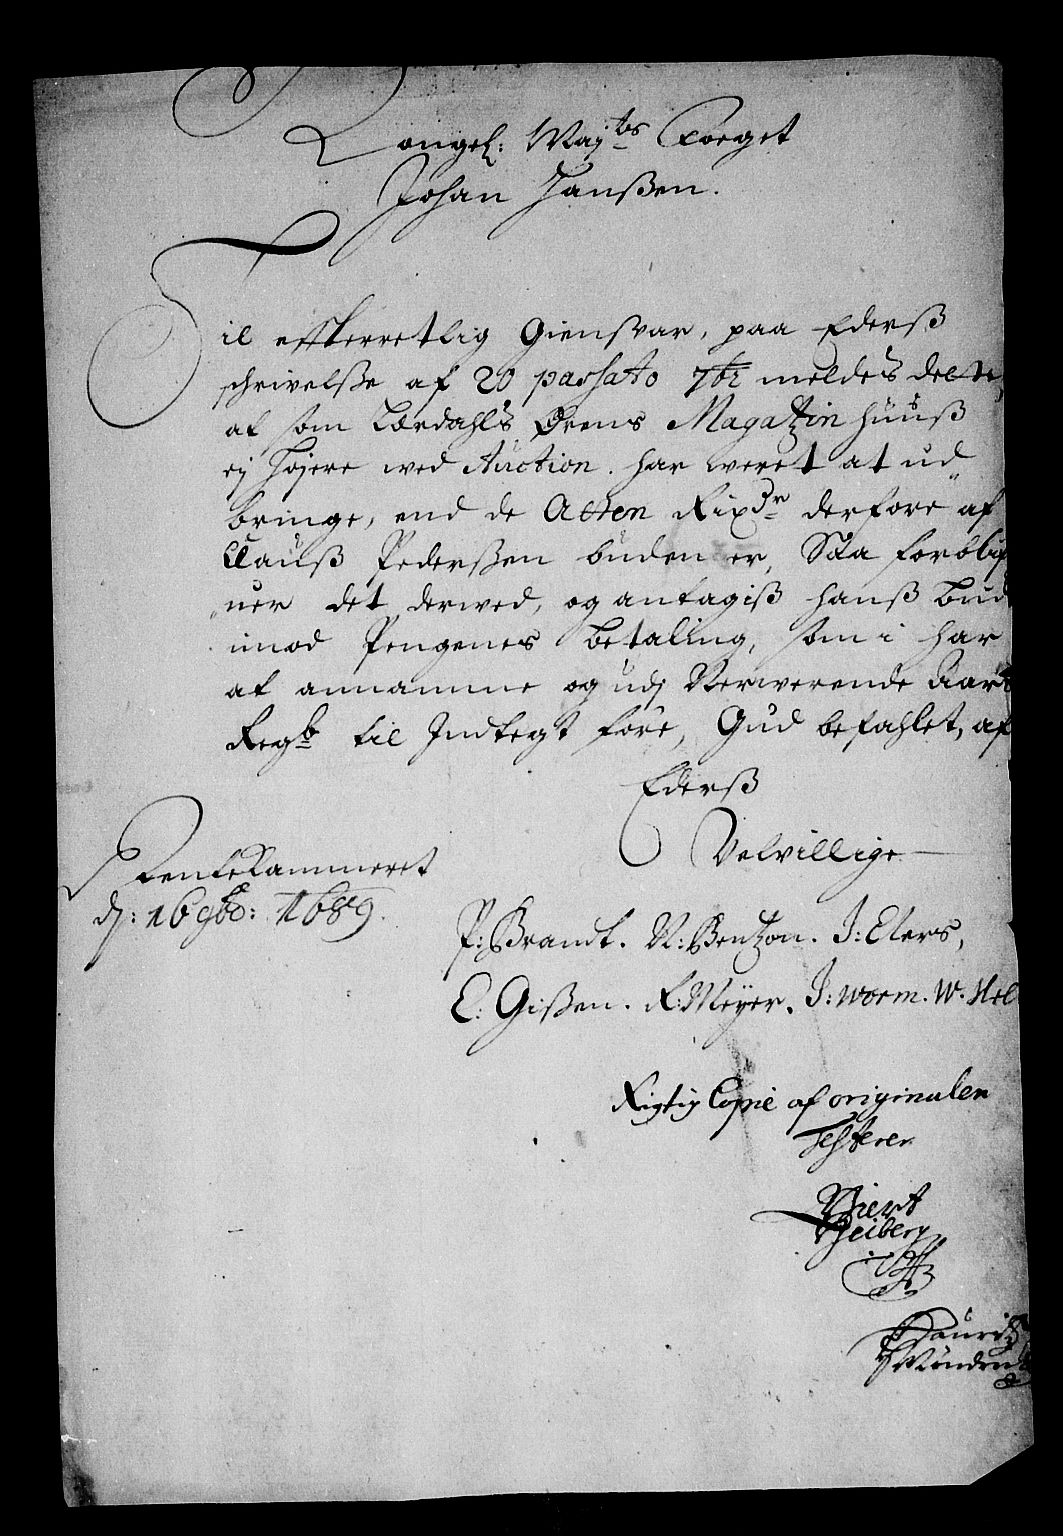 Kongel: Maytes Foeget
Johan Hanßen.
Til effterretlig Giensvar, paa Ederß
schrivelße af 20 passato 7br meldes dette,
at som Lærdahls Ørens Magatzin huuß
ej højere wed Auction har weret at ud
bringe, end de Atten Rixdr derfore af
Clauß Pederßen buden er, Saa forblif
uer det derwed, og antagiß hanß bud
imod Pengenes betaling, som i har
at annamme og udj Nerwerende Aars
Regb til Indtegt føre, Gud befahlet, af
Ederß
Velvillige
RenteKammeret
dj: 16 9bo: 1689.
P: Brandt. N: Bentzon. J: Elers,
C: Gißen. R: Meyer. J: Worm. W. Hel
Rigtig Copie af originalen
Testerer
Wiert
Heiberg
Lauritz